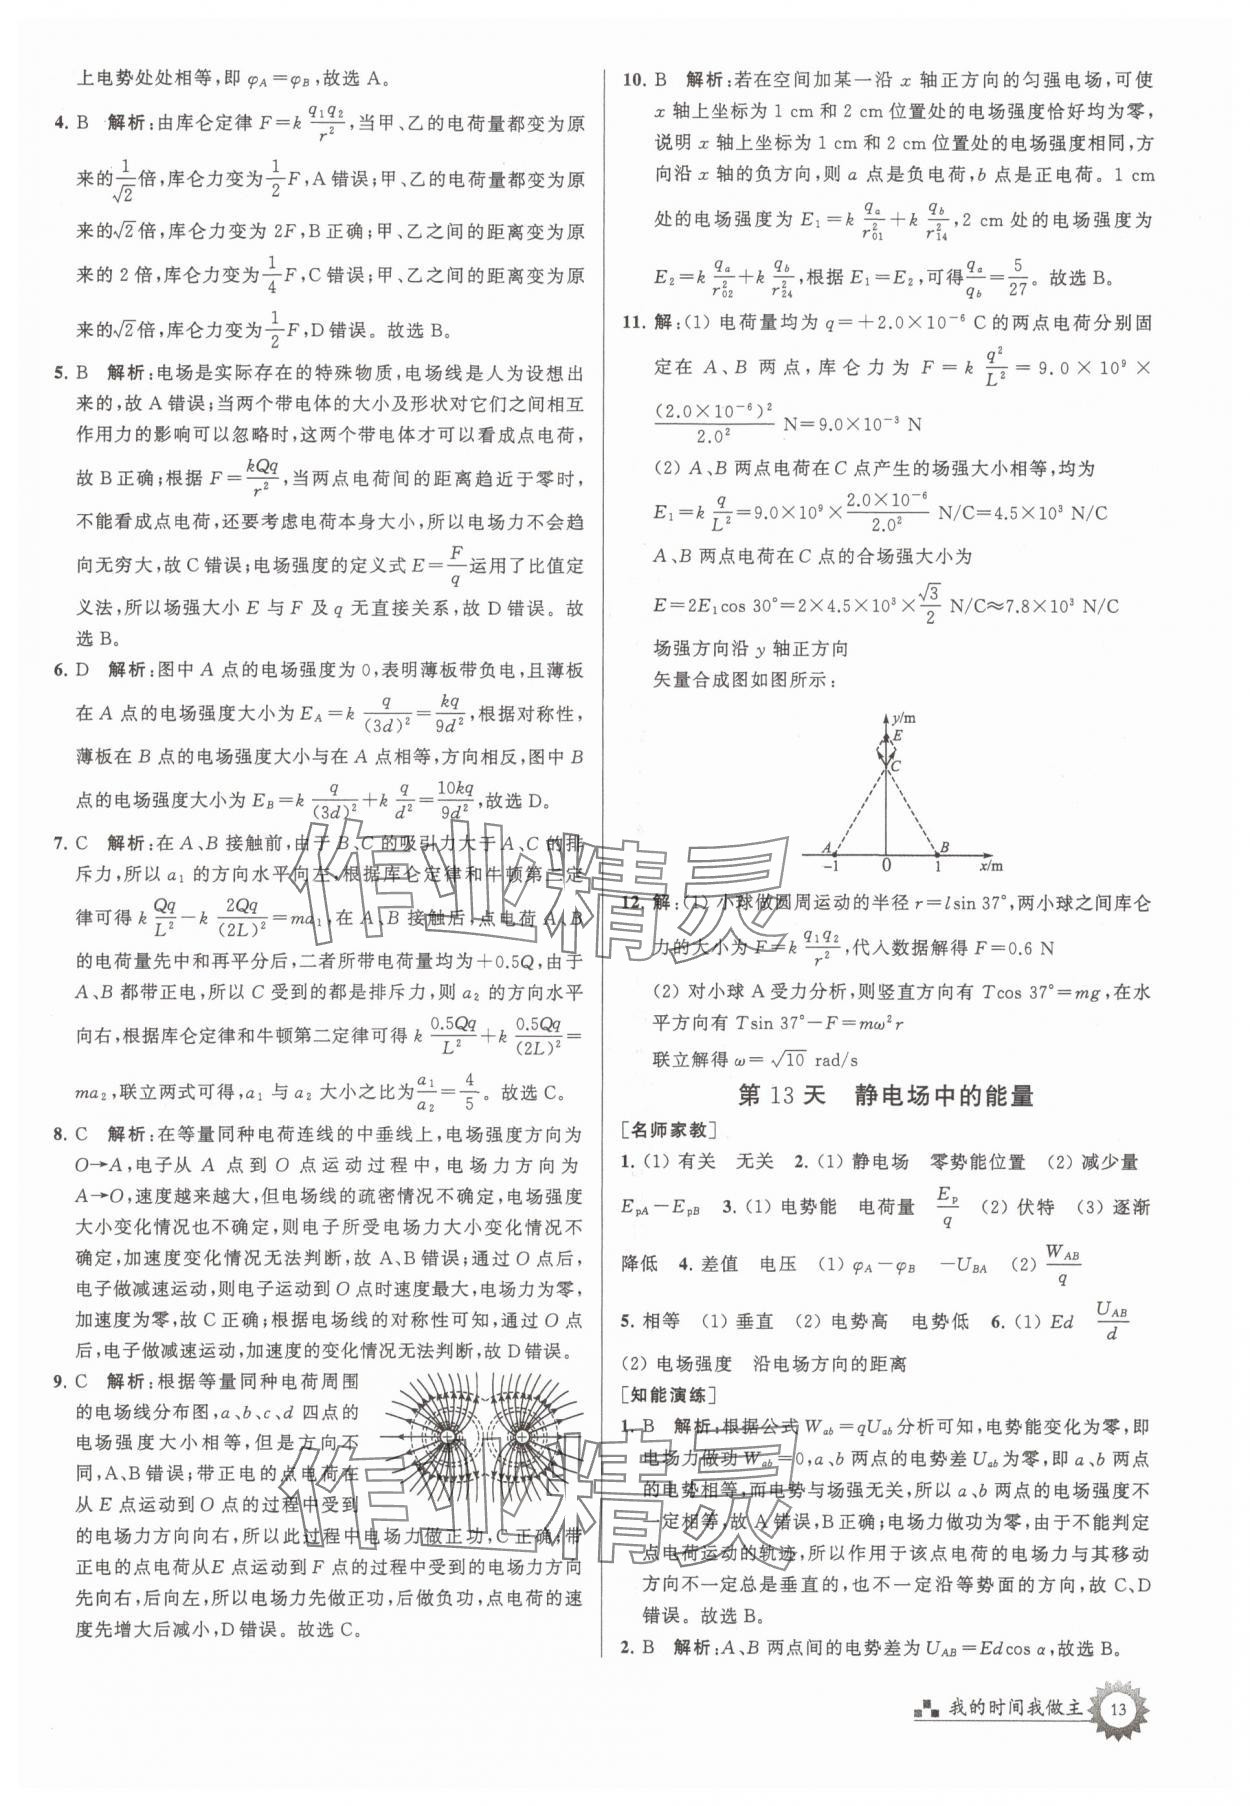 上电势处处相等,即 φA=φB,故选 A。
4. B 解析:由库仑定律 F=k q₁q₂/r²,当甲、乙的电荷量都变为原
来的 1/√2 倍,库仑力变为 1/2 F,A 错误;甲、乙的电荷量都变为原
来的√2倍,库仑力变为 2F,B 正确;甲、乙之间的距离变为原
来的 2 倍,库仑力变为 1/4 F,C 错误;甲、乙之间的距离变为原
来的√2倍,库仑力变为 1/2 F,D 错误。故选 B。
5. B 解析:电场是实际存在的特殊物质,电场线是人为设想出
来的,故 A 错误;当两个带电体的大小及形状对它们之间相互
作用力的影响可以忽略时,这两个带电体才可以看成点电荷,
故 B 正确;根据 F=kQq/r²,当两点电荷间的距离趋近于零时,
不能看成点电荷,还要考虑电荷本身大小,所以电场力不会趋
向无穷大,故 C 错误;电场强度的定义式 E=F/q 运用了比值定
义法,所以场强大小 E 与 F 及 q 无直接关系,故 D 错误。故
选 B。
6. D 解析:图中 A 点的电场强度为 0,表明薄板带负电,且薄板
在 A 点的电场强度大小为 EA=k q/(3d)²=kq/9d²,根据对称性,
薄板在 B 点的电场强度大小与在 A 点相等,方向相反,图中 B
点的电场强度大小为 EB=k q/(3d)²+k q/d²=10kq/9d²,故选 D。
7. C 解析:在 A、B 接触前,由于 B、C 的吸引力大于 A、C 的排
斥力,所以 a₁ 的方向水平向左,根据库仑定律和牛顿第二定
律可得 k Qq/L²-k 2Qq/(2L)²=ma₁,在 A、B 接触后,点电荷 A、B
的电荷量先中和再平分后,二者所带电荷量均为+0.5Q,由于
A、B 都带正电,所以 C 受到的都是排斥力,则 a₂ 的方向水平
向右,根据库仑定律和牛顿第二定律可得 k 0.5Qq/L²+k 0.5Qq/(2L)²=
ma₂,联立两式可得,a₁ 与 a₂ 大小之比为 a₁/a₂=4/5。故选 C。
8. C 解析:在等量同种电荷连线的中垂线上,电场强度方向为
O→A,电子从 A 点到 O 点运动过程中,电场力方向为
A→O,速度越来越大,但电场线的疏密情况不确定,电场强度
大小变化情况也不确定,则电子所受电场力大小变化情况不
确定,加速度变化情况无法判断,故 A、B 错误;通过 O 点后,
电子做减速运动,则电子运动到 O 点时速度最大,电场力为零,
加速度为零,故 C 正确;根据电场线的对称性可知,通过 O 点
后,电子做减速运动,加速度的变化情况无法判断,故 D 错误。
9. C 解析:根据等量同种电荷周围
的电场线分布图,a、b、c、d 四点的
电场强度大小相等,但是方向不
同,A、B 错误;带正电的点电荷在
从 E 点运动到 O 点的过程中受到
的电场力方向向右,所以此过程中电场力做正功,C 正确;带
正电的点电荷从 E 点运动到 F 点的过程中受到的电场力方向
先向右,后向左,所以电场力先做正功,后做负功,点电荷的速
度先增大后减小,D 错误。故选 C。
10. B 解析:若在空间加某一沿 x 轴正方向的匀强电场,可使
x 轴上坐标为 1 cm 和 2 cm 位置处的电场强度恰好均为零,
说明 x 轴上坐标为 1 cm 和 2 cm 处的电场强度相同,方
向沿 x 轴的负方向,则 a 点是负电荷,b 点是正电荷。1 cm
处的电场强度为 E₁=k qa/r²₀₁+k qb/r²₁₄,2 cm 处的电场强度为
E₂=k qa/r²₀₂+k qb/r²₂₄,根据 E₁=E₂,可得 qa/qb=5/27。故选 B。
11. 解:(1) 电荷量均为 q=+2.0×10⁻⁶ C 的两点电荷分别固
定在 A、B 两点,库仑力为 F=k q²/L²=9.0×10⁹×
(2.0×10⁻⁶)²/2.0² N=9.0×10⁻³ N
(2) A、B 两点电荷在 C 点产生的场强大小相等,均为
E₁=k q/L²=9.0×10⁹×2.0×10⁻⁶/2.0² N/C=4.5×10³ N/C
A、B 两点电荷在 C 点的合场强大小为
E=2E₁cos 30°=2×4.5×10³×√3/2 N/C≈7.8×10³ N/C
场强方向沿 y 轴正方向
矢量合成图如图所示:
y/m
E
C
A B
-1 0 1 x/m
12. 解:(1) 小球做圆周运动的半径 r=lsin 37°,两小球之间库仑
力的大小为 F=k q₁q₂/r²,代入数据解得 F=0.6 N
(2) 对小球 A 受力分析,则竖直方向有 Tcos 37°=mg,在水
平方向有 Tsin 37°-F=mω²r
联立解得 ω=√10 rad/s
第 13 天 静电场中的能量
[名师家教]
1. (1) 有关 无关 2. (1) 静电场 零势能位置 (2) 减少量
EpA-EpB 3. (1) 电势能 电荷量 Ep/q (2) 伏特 (3) 逐渐
降低 4. 差值 电压 (1) φA-φB -UBA (2) WAB/q
5. 相等 (1) 垂直 (2) 电势高 电势低 6. (1) Ed UAB/d
(2) 电场强度 沿电场方向的距离
[知能演练]
1. B 解析:根据公式 Wab=qUab分析可知,电势能变化为零,即
电场力做功 Wab=0,a、b 两点的电势差 Uab为零,即 a、b 两点
的电势相等,而电势与场强无关,所以 a、b 两点的电场强度不
一定相等,故 A 错误,B 正确;电场力做功为零,由于不能判定
点电荷运动的轨迹,所以作用于该点电荷的电场力与其移动
方向不一定总是垂直的,也不一定沿等势面的方向,故 C、D
错误。故选 B。
2. B 解析:A、B 两点间的电势差为 UAB=Edcos α,故选 B。
作业精灵
作业精灵
我的时间我做主 13